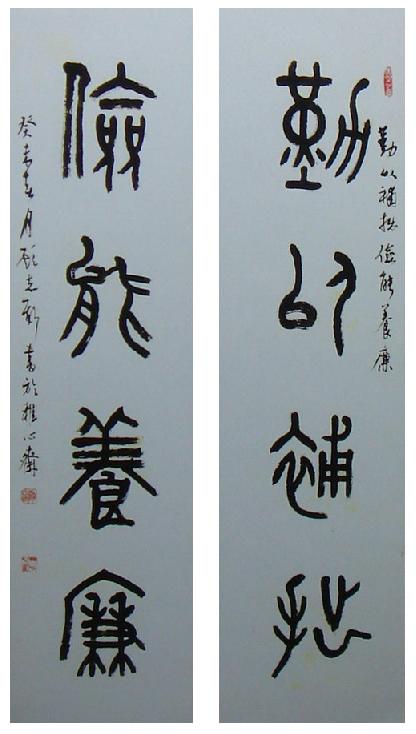 勤以補拙
勤以補拙儉能養廉
儉能養廉
癸未春月
書於雅心齋